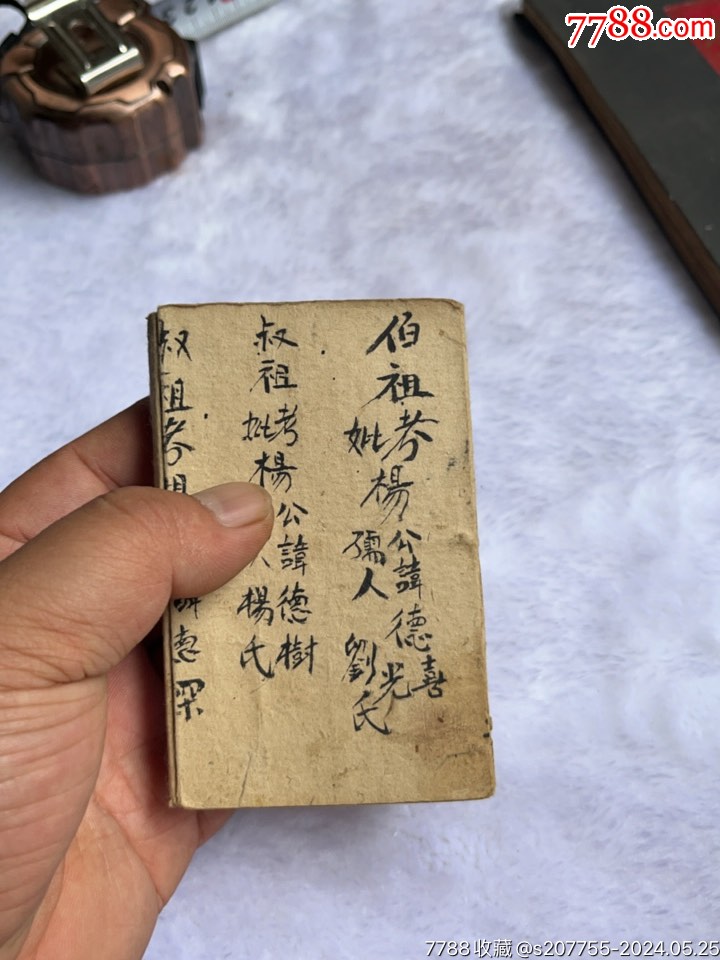 7788.com
伯祖考楊公諱德喜光
妣孺人劉氏
叔祖考楊公諱德樹
妣人楊氏
叔祖考楊諱德
7788收藏@s207755-2024.05.25